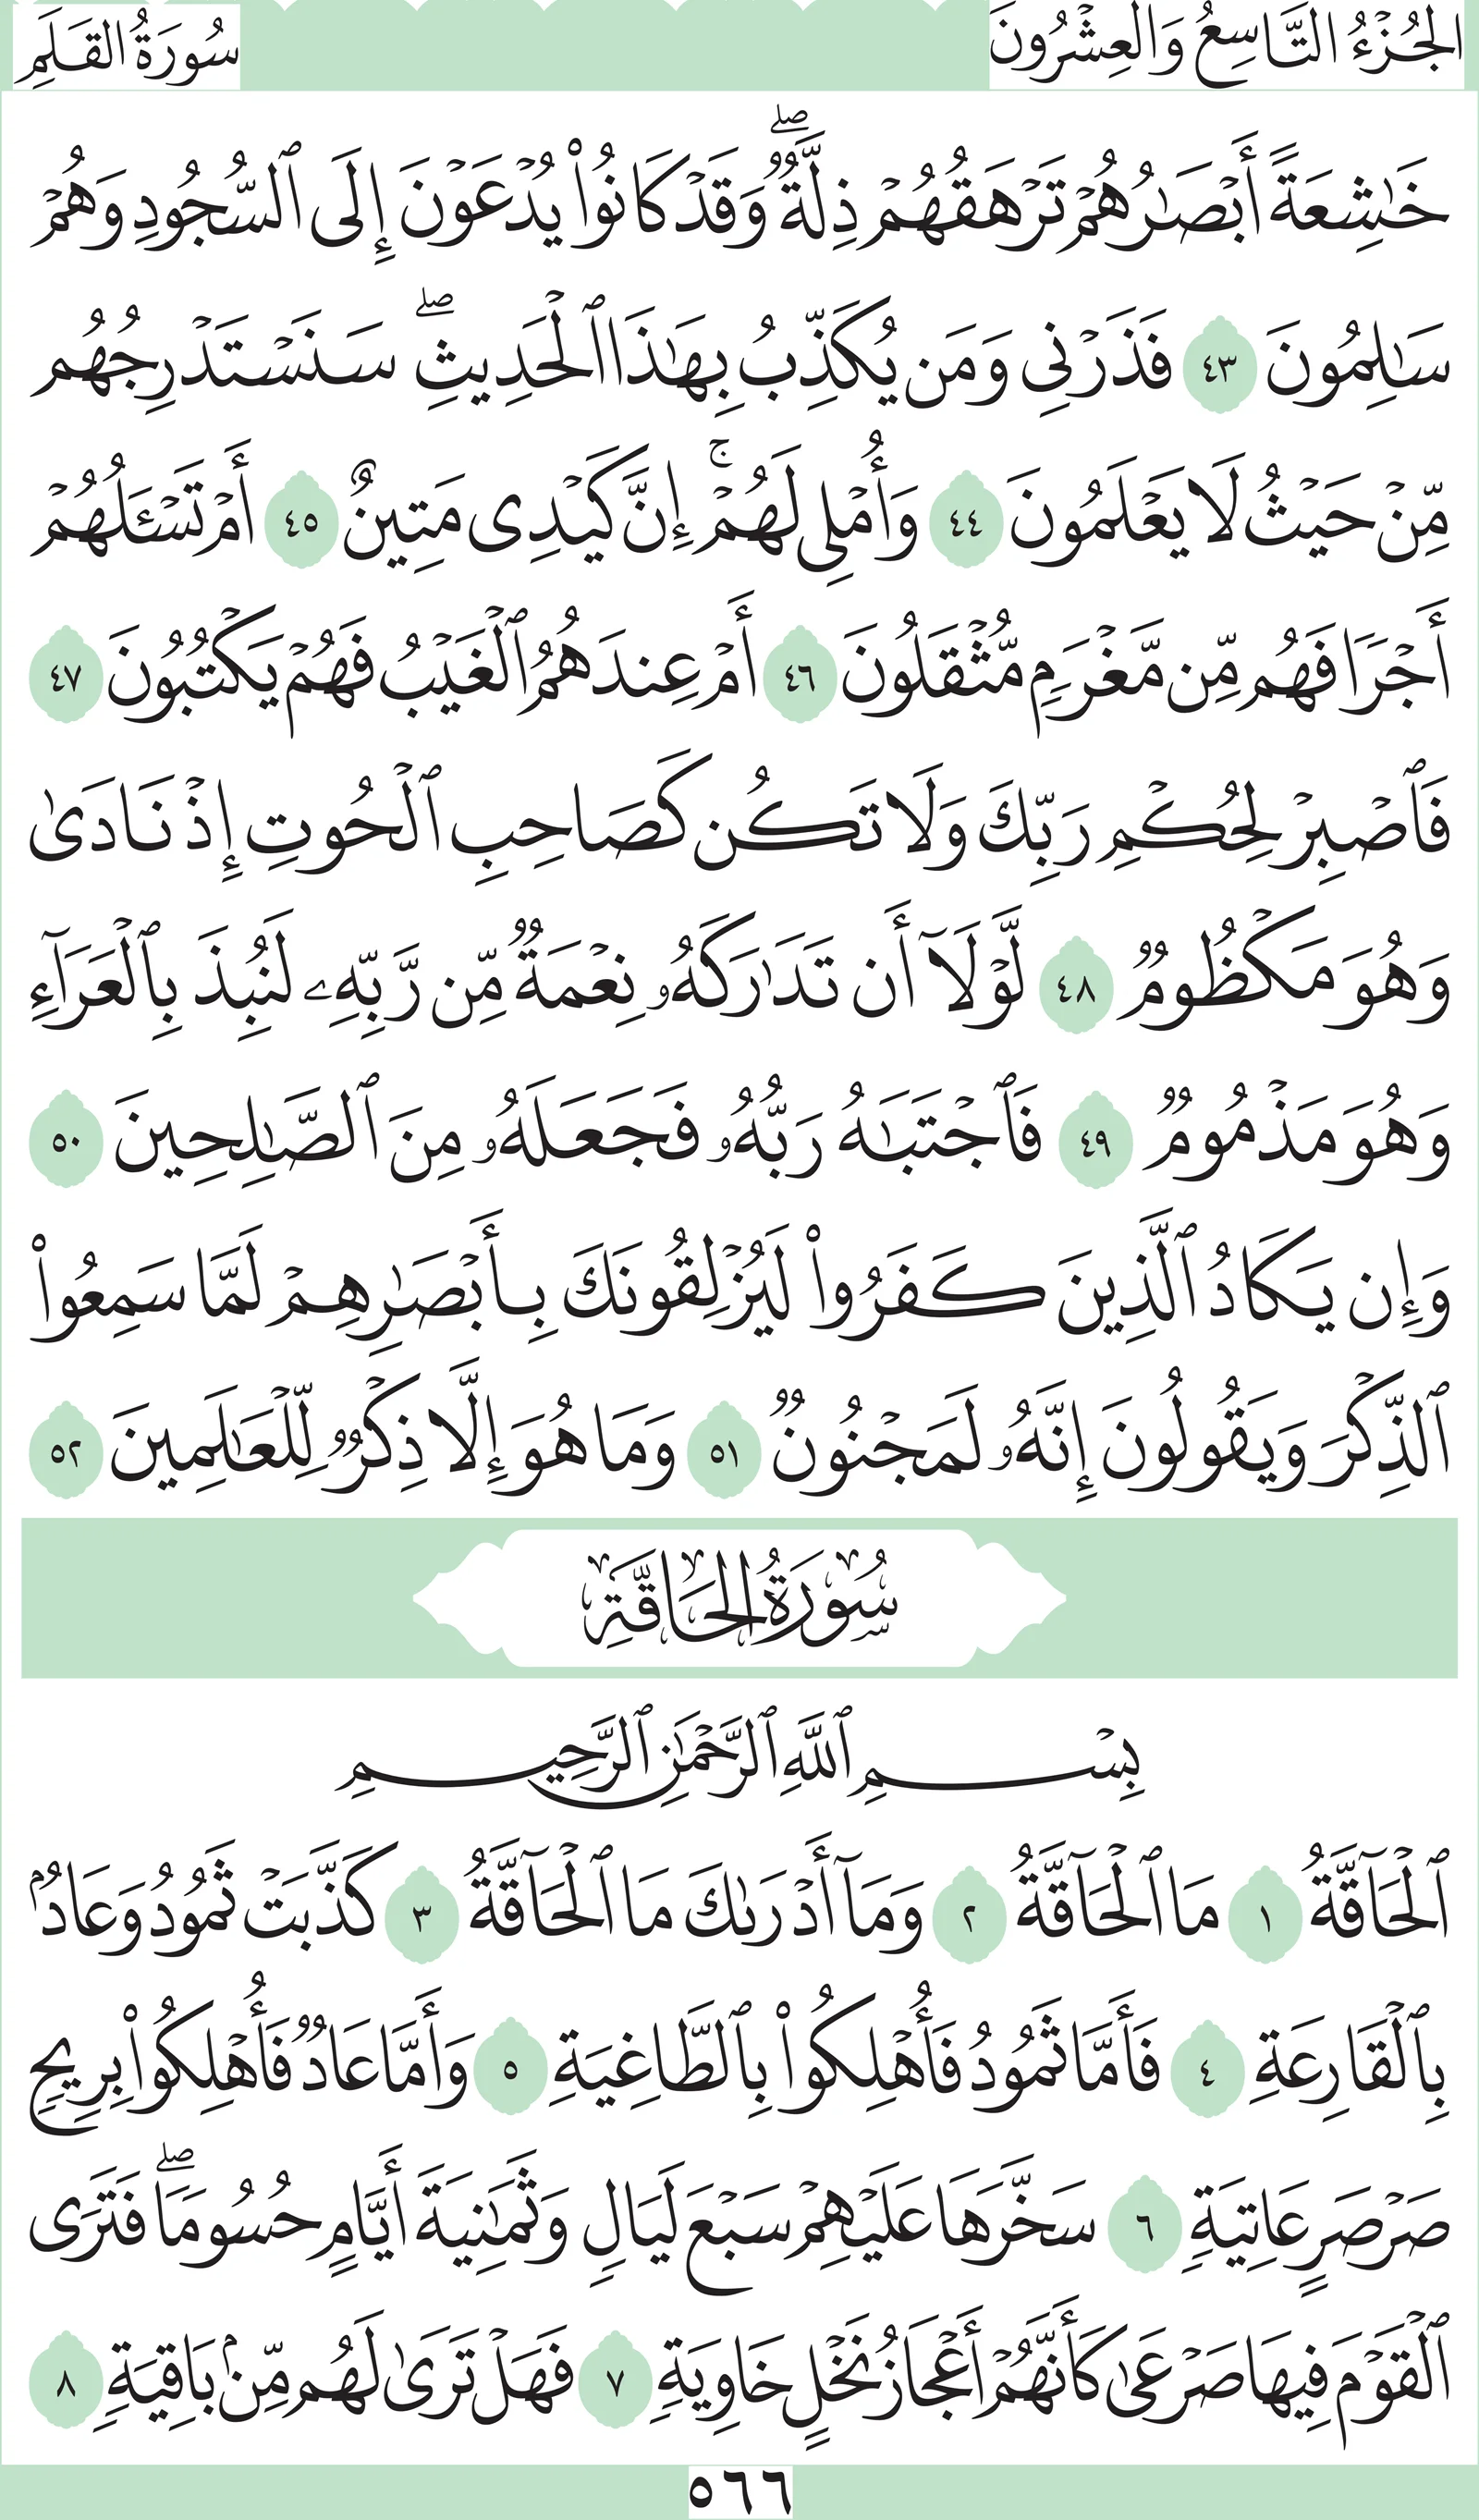 الجُزْءُ التَّاسِعُ وَالعِشْرُونَ
سُورَةُ القَلَمِ
خَٰشِعَةً أَبْصَٰرُهُمْ تَرْهَقُهُمْ ذِلَّةٌۖ وَقَدْ كَانُوا۟ يُدْعَوْنَ إِلَى ٱلسُّجُودِ وَهُمْ
سَٰلِمُونَ ٤٣ فَذَرْنِى وَمَن يُكَذِّبُ بِهَٰذَا ٱلْحَدِيثِۖ سَنَسْتَدْرِجُهُم
مِّنْ حَيْثُ لَا يَعْلَمُونَ ٤٤ وَأُمْلِى لَهُمْۚ إِنَّ كَيْدِى مَتِينٌ ٤٥ أَمْ تَسْـَٔلُهُمْ
أَجْرًا فَهُم مِّن مَّغْرَمٍ مُّثْقَلُونَ ٤٦ أَمْ عِندَهُمُ ٱلْغَيْبُ فَهُمْ يَكْتُبُونَ ٤٧
فَٱصْبِرْ لِحُكْمِ رَبِّكَ وَلَا تَكُن كَصَاحِبِ ٱلْحُوتِ إِذْ نَادَىٰ
وَهُوَ مَكْظُومٌ ٤٨ لَّوْلَآ أَن تَدَٰرَكَهُۥ نِعْمَةٌ مِّن رَّبِّهِۦ لَنُبِذَ بِٱلْعَرَآءِ
وَهُوَ مَذْمُومٌ ٤٩ فَٱجْتَبَٰهُ رَبُّهُۥ فَجَعَلَهُۥ مِنَ ٱلصَّٰلِحِينَ ٥٠
وَإِن يَكَادُ ٱلَّذِينَ كَفَرُوا۟ لَيُزْلِقُونَكَ بِأَبْصَٰرِهِمْ لَمَّا سَمِعُوا۟
ٱلذِّكْرَ وَيَقُولُونَ إِنَّهُۥ لَمَجْنُونٌ ٥١ وَمَا هُوَ إِلَّا ذِكْرٌ لِّلْعَٰلَمِينَ ٥٢
سُورَةُ الحَاقَّةِ
بِسْمِ ٱللَّهِ ٱلرَّحْمَٰنِ ٱلرَّحِيمِ
ٱلْحَآقَّةُ ١ مَا ٱلْحَآقَّةُ ٢ وَمَآ أَدْرَىٰكَ مَا ٱلْحَآقَّةُ ٣ كَذَّبَتْ ثَمُودُ وَعَادٌۢ
بِٱلْقَارِعَةِ ٤ فَأَمَّا ثَمُودُ فَأُهْلِكُوا۟ بِٱلطَّاغِيَةِ ٥ وَأَمَّا عَادٌ فَأُهْلِكُوا۟ بِرِيحٍ
صَرْصَرٍ عَاتِيَةٍ ٦ سَخَّرَهَا عَلَيْهِمْ سَبْعَ لَيَالٍ وَثَمَٰنِيَةَ أَيَّامٍ حُسُومًاۖ فَتَرَى
ٱلْقَوْمَ فِيهَا صَرْعَىٰ كَأَنَّهُمْ أَعْجَازُ نَخْلٍ خَاوِيَةٍ ٧ فَهَلْ تَرَىٰ لَهُم مِّنۢ بَاقِيَةٍ ٨
٥٦٦